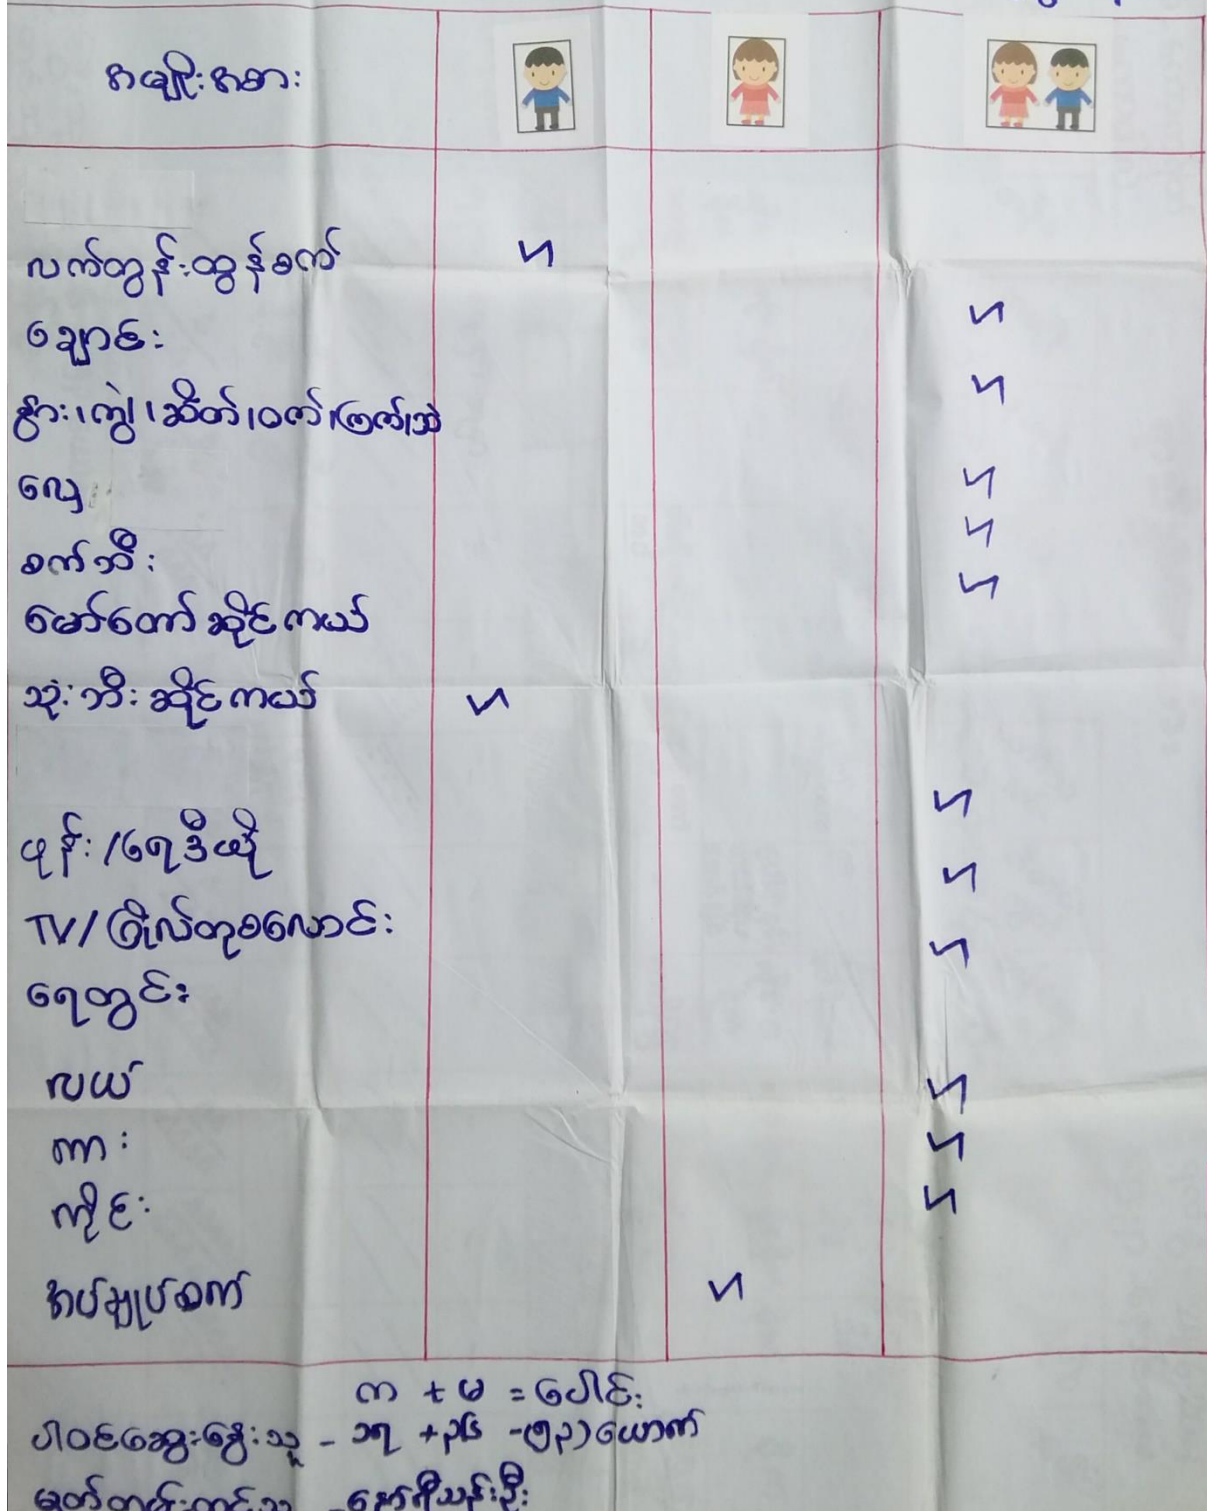 အမျိုးအစား
လက်တွန်းထွန်စက်
ချောင်း
နွား၊ကျွဲ၊ဆိတ်၊ဝက်၊ကြက်၊ဘဲ
လှေ
စက်ဘီး
မော်တော်ဆိုင်ကယ်
သုံးဘီးဆိုင်ကယ်
ဖုန်း/ရေဒီယို
TV/ဂြိုလ်တုစလောင်း
ရေတွင်း
လယ်
ကား
ကိုင်း
အပ်ချုပ်စက်
က + မ = ပေါင်း
ပါဝင်ဆွေးနွေးသူ - ယောက်